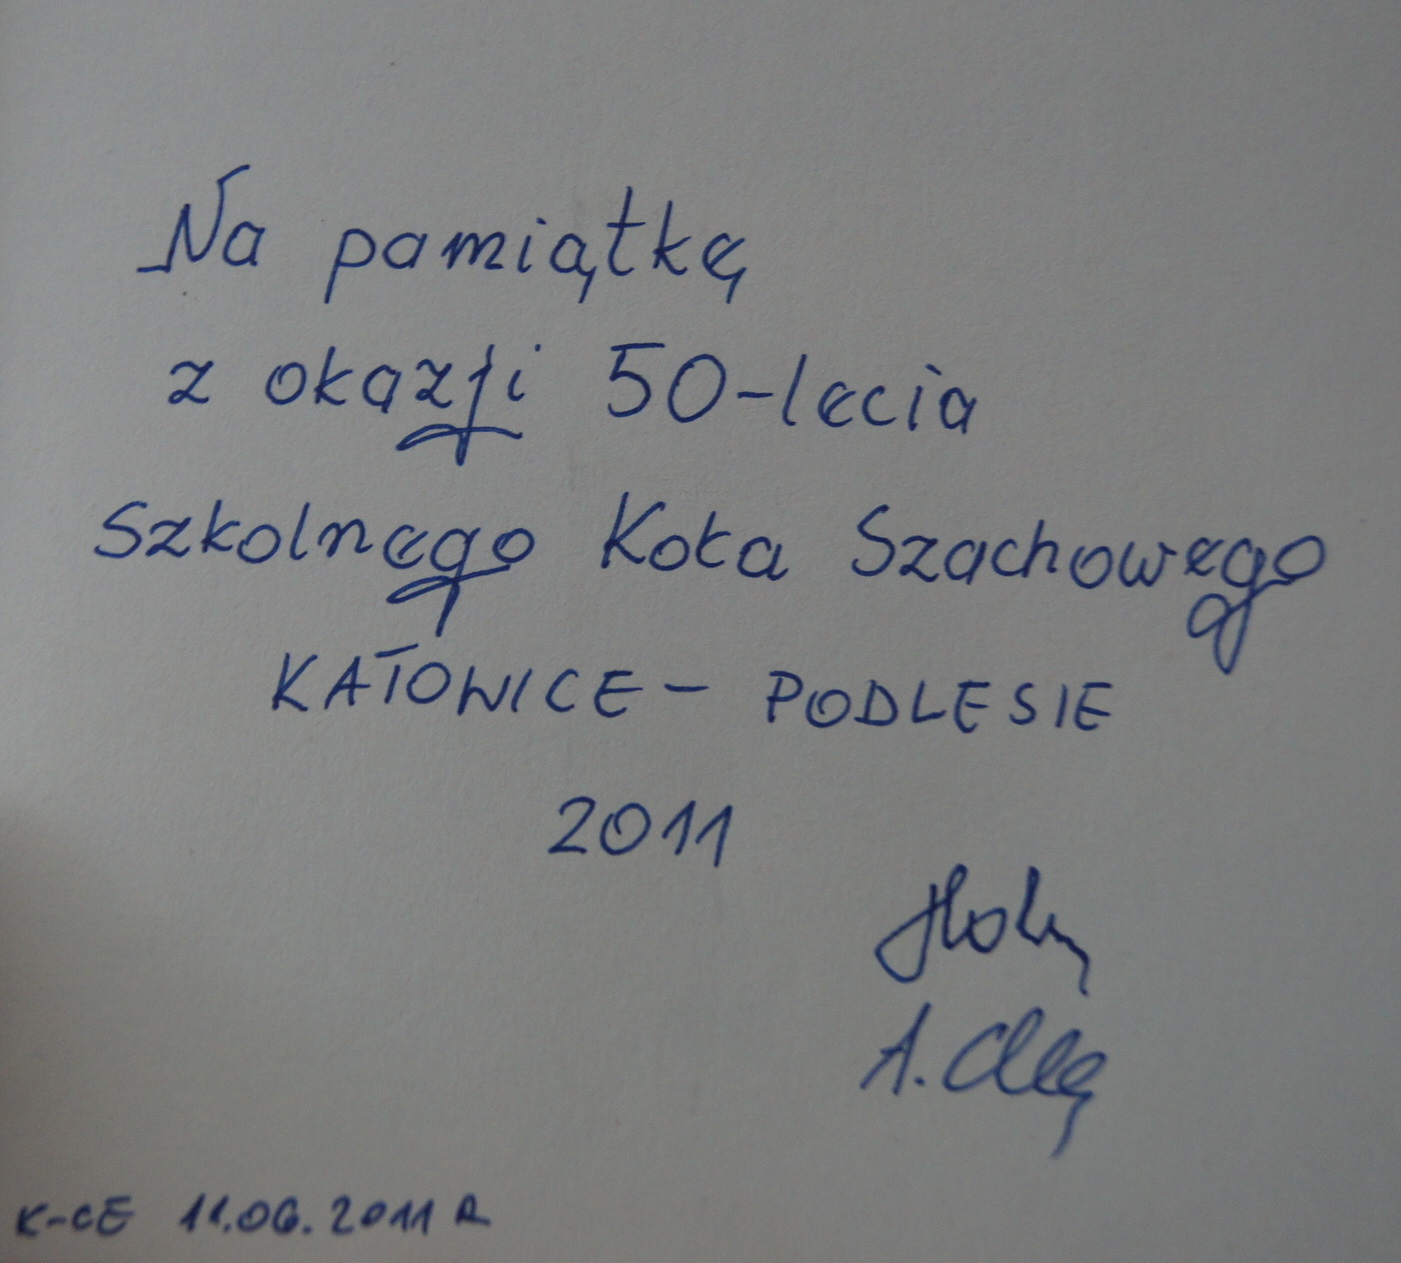 Na pamiątkę
z okazji 50-lecia
Szkolnego Koła Szachowego
KATOWICE - PODLESIE
2011
K-CE 11.06.2011 R